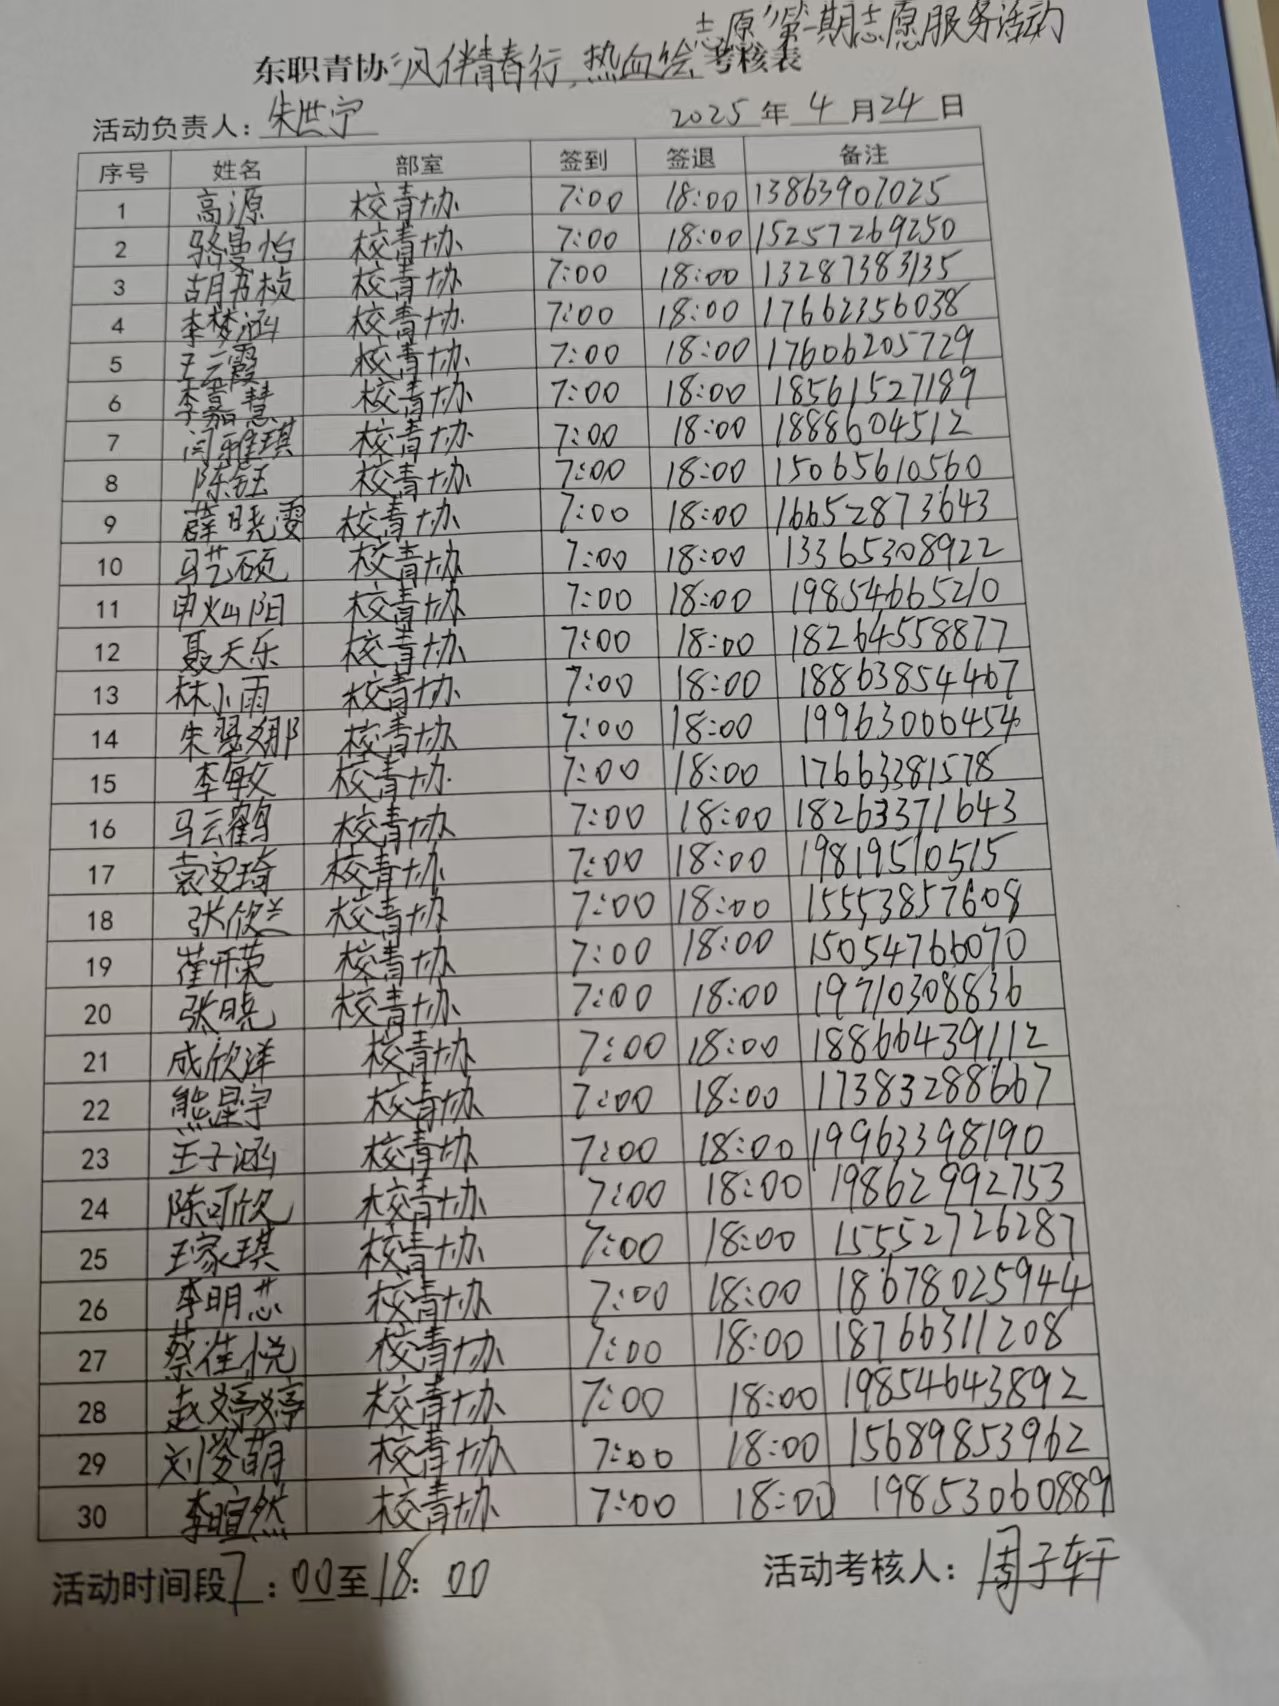 志愿”第一期志愿服务活动
东职青协“风伴青春行,热血绘考核表
活动负责人：朱世宁 2025年4月24日
序号 姓名 部室 签到 签退 备注
1 高源 校青协 7:00 18:00 13863907025
2 骆曼怡 校青协 7:00 18:00 15257269250
3 胡书桢 校青协 7:00 18:00 13287383135
4 李梦涵 校青协 7:00 18:00 17662356038
5 王云霞 校青协 7:00 18:00 17606205729
6 李嘉慧 校青协 7:00 18:00 18561527189
7 闫雅琪 校青协 7:00 18:00 1888604512
8 陈钰 校青协 7:00 18:00 15065610560
9 薛晓雯 校青协 7:00 18:00 16652873643
10 马艺硕 校青协 7:00 18:00 13365308922
11 申灿阳 校青协 7:00 18:00 19854665210
12 聂天乐 校青协 7:00 18:00 18264558877
13 林小雨 校青协 7:00 18:00 18863854467
14 朱翠娜 校青协 7:00 18:00 19963000454
15 李敏 校青协 7:00 18:00 17663281578
16 马云鹤 校青协 7:00 18:00 18263371643
17 袁安琦 校青协 7:00 18:00 19819510515
18 张欣兰 校青协 7:00 18:00 15553857608
19 崔忻荣 校青协 7:00 18:00 15054766070
20 张晓 校青协 7:00 18:00 19710308836
21 成欣洋 校青协 7:00 18:00 18866439112
22 熊星宇 校青协 7:00 18:00 17383288667
23 王子涵 校青协 7:00 18:00 19963398190
24 陈可欣 校青协 7:00 18:00 19862992753
25 王家琪 校青协 7:00 18:00 15552726287
26 李明芯 校青协 7:00 18:00 18678025944
27 蔡佳悦 校青协 7:00 18:00 18766311208
28 赵婷婷 校青协 7:00 18:00 19854643892
29 刘姿萌 校青协 7:00 18:00 15689853962
30 李暄然 校青协 7:00 18:00 19853060889
活动时间段7：00至18：00 活动考核人：周子轩